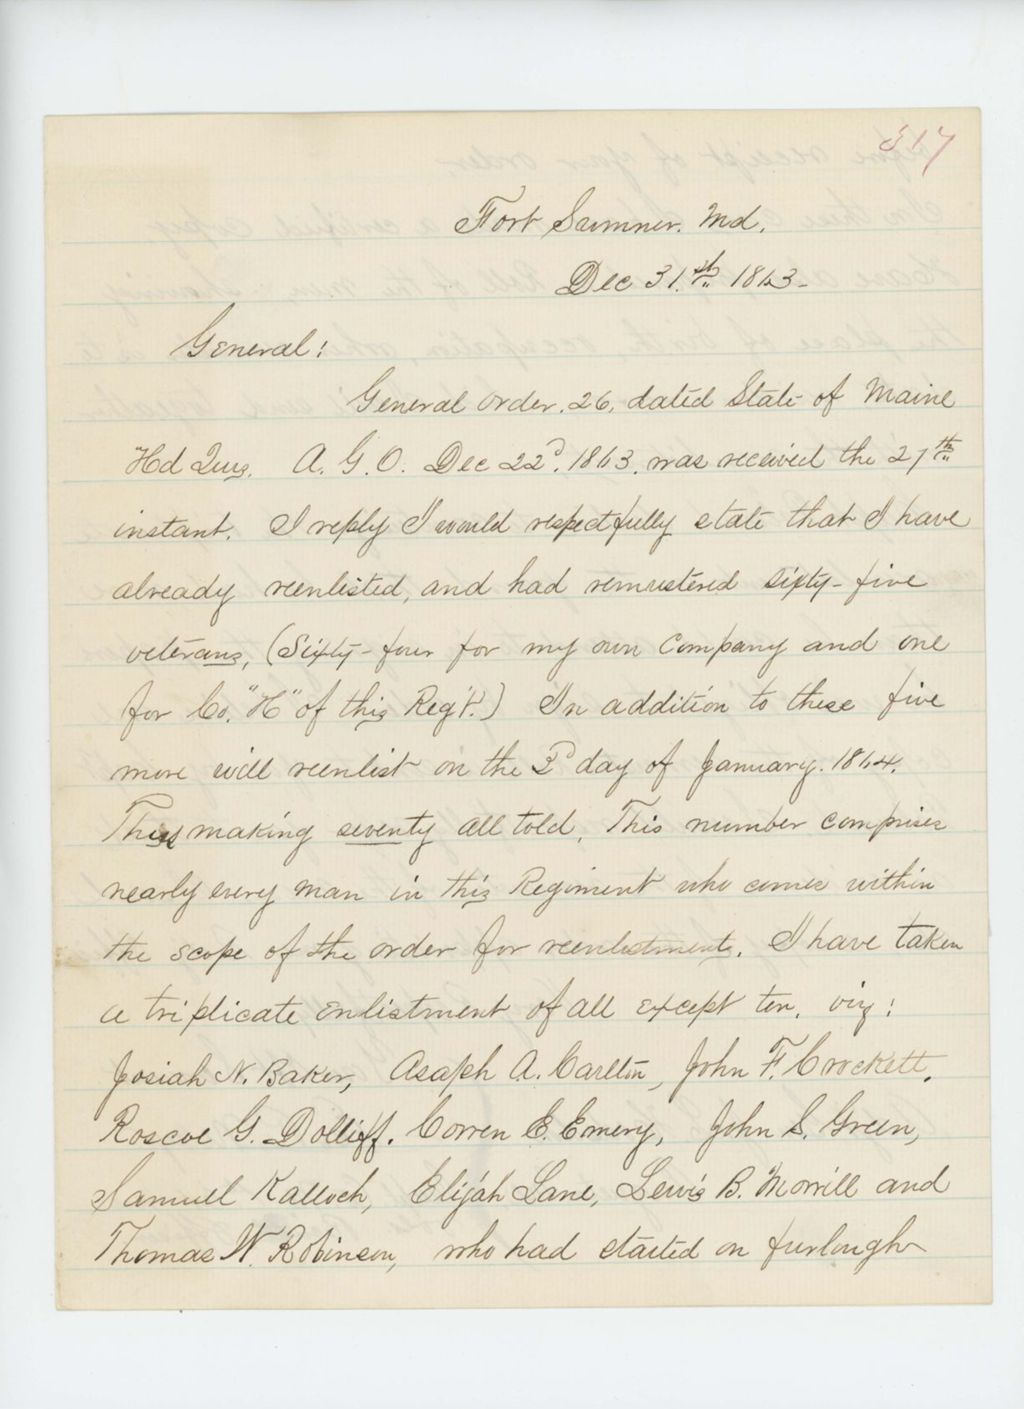 317
Fort Sumner. Md.
Dec 31.st 1863.
General:
General Order. 26, dated State of Maine
Hd Qurs. A. G. O. Dec 22d. 1863, was received the 27th
instant. I reply I would respectfully state that I have
already reenlisted, and had remustered sixty-five
veterans, (Sixty-four for my own Company and one
for Co. "H" of this Reg't.) In addition to these five
more will reenlist on the 3d day of January. 1864.
Thus making seventy all told, This number comprises
nearly every man in this Regiment who comes within
the scope of the order for reenlistments. I have taken
a triplicate enlistment of all except ten, viz:
Josiah N. Baker, Asaph A. Carlton, John F. Crockett,
Roscoe G. Dolliff. Corren E. Emery, John S. Green,
Samuel Kalloch, Elijah Lane, Lewis B. Morrill and
Thomas W. Robinson, who had started on furlough